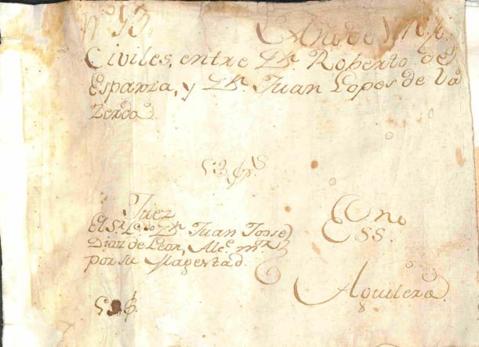 Nº 53.
Civiles, entre Dn. Roberto de
Esparza, y Dn. Juan Lopes de La
Zerda
Juez
El Sr. Dn. Juan Jose
Diaz de Leon, Alc.
por su Magestad.
Eno
Ess.
Aguilera